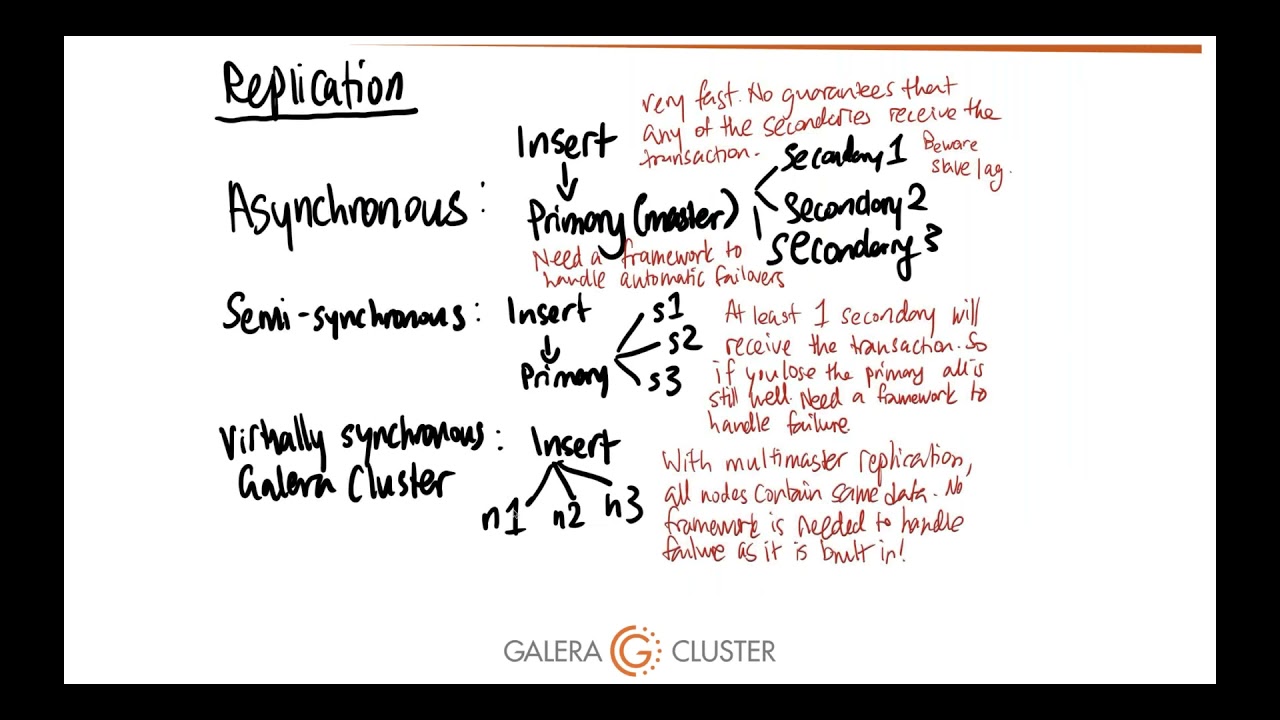 Replication
very fast. No guarantees that
any of the secondaries receive the
transaction.
Beware
slave lag.
Asynchronous:
Insert
Primary (master)
Secondary 1
Secondary 2
Secondary 3
Need a framework to
handle automatic failovers
Semi-synchronous:
Insert
Primary
s1
s2
s3
At least 1 secondary will
receive the transaction. So
if you lose the primary all is
still well. Need a framework to
handle failure.
Virtually synchronous:
Galera Cluster
Insert
n1 n2 n3
With multimaster replication,
all nodes contain same data. No
framework is needed to handle
failure as it is built in!
GALERA CLUSTER